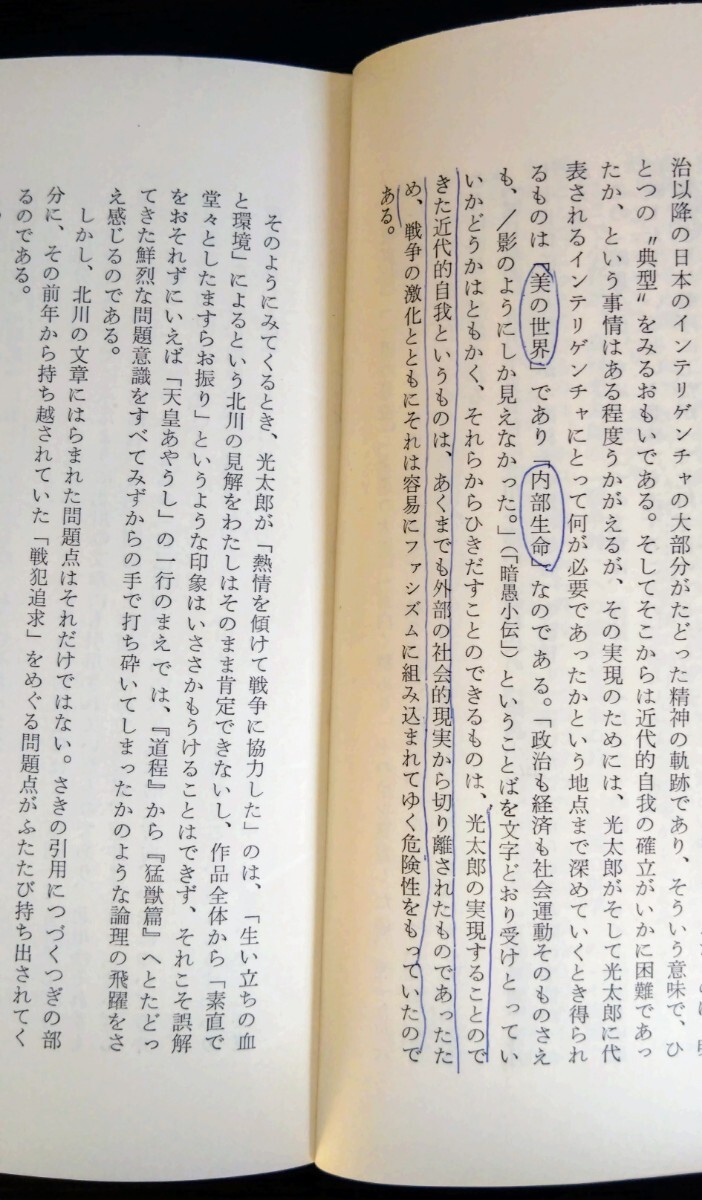 治以降の日本のインテリゲンチャの大部分がたどった精神の軌跡であり、そういう意味で、ひ
とつの〝典型〟をみるおもいである。そしてそこからは近代的自我の確立がいかに困難であっ
たか、という事情はある程度うかがえるが、その実現のためには、光太郎がそして光太郎に代
表されるインテリゲンチャにとって何が必要であったかという地点まで深めていくとき得られ
るものは「美の世界」であり「内部生命」なのである。「政治も経済も社会運動そのものさえ
も、／影のようにしか見えなかった。」（「暗愚小伝」）ということばを文字どおり受けとってい
いかどうかはともかく、それらからひきだすことのできるものは、光太郎の実現することので
きた近代的自我というものは、あくまでも外部の社会的現実から切り離されたものであったた
め、戦争の激化とともにそれは容易にファシズムに組み込まれてゆく危険性をもっていたので
ある。
そのようにみてくるとき、光太郎が「熱情を傾けて戦争に協力した」のは、「生い立ちの血
と環境」によるという北川の見解をわたしはそのまま肯定できないし、作品全体から「素直で
堂々としたますらお振り」というような印象はいささかもうけることはできず、それこそ誤解
をおそれずにいえば「天皇あやうし」の一行のまえでは、『道程』から『猛獣篇』へとたどっ
てきた鮮烈な問題意識をすべてみずからの手で打ち砕いてしまったかのような論理の飛躍をさ
え感じるのである。
しかし、北川の文章にはらまれた問題点はそれだけではない。さきの引用につづくつぎの部
分に、その前年から持ち越されていた「戦犯追求」をめぐる問題点がふたたび持ち出されてく
るのである。